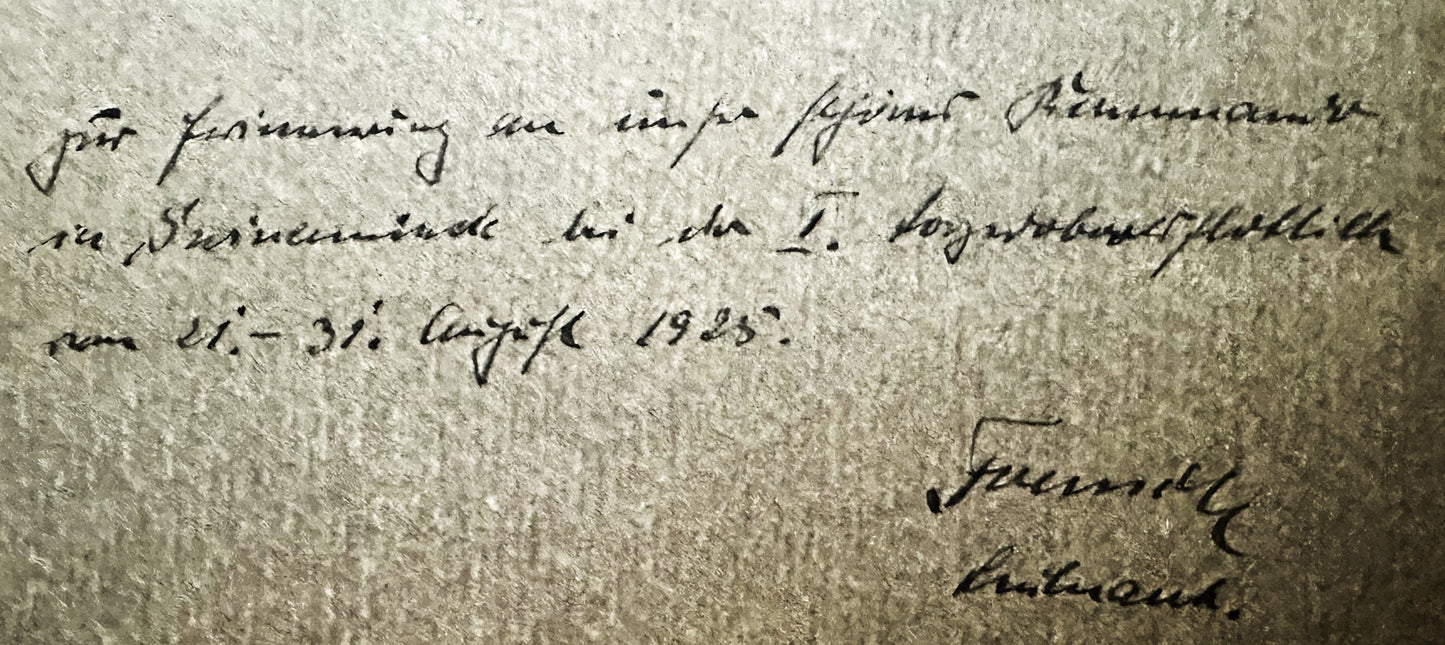 Zur Erinnerung an unser schönes Kommando
in Swinemünde bei der I. Torpedobootsflottille
vom 21. – 31. August 1925.
Leutnant.